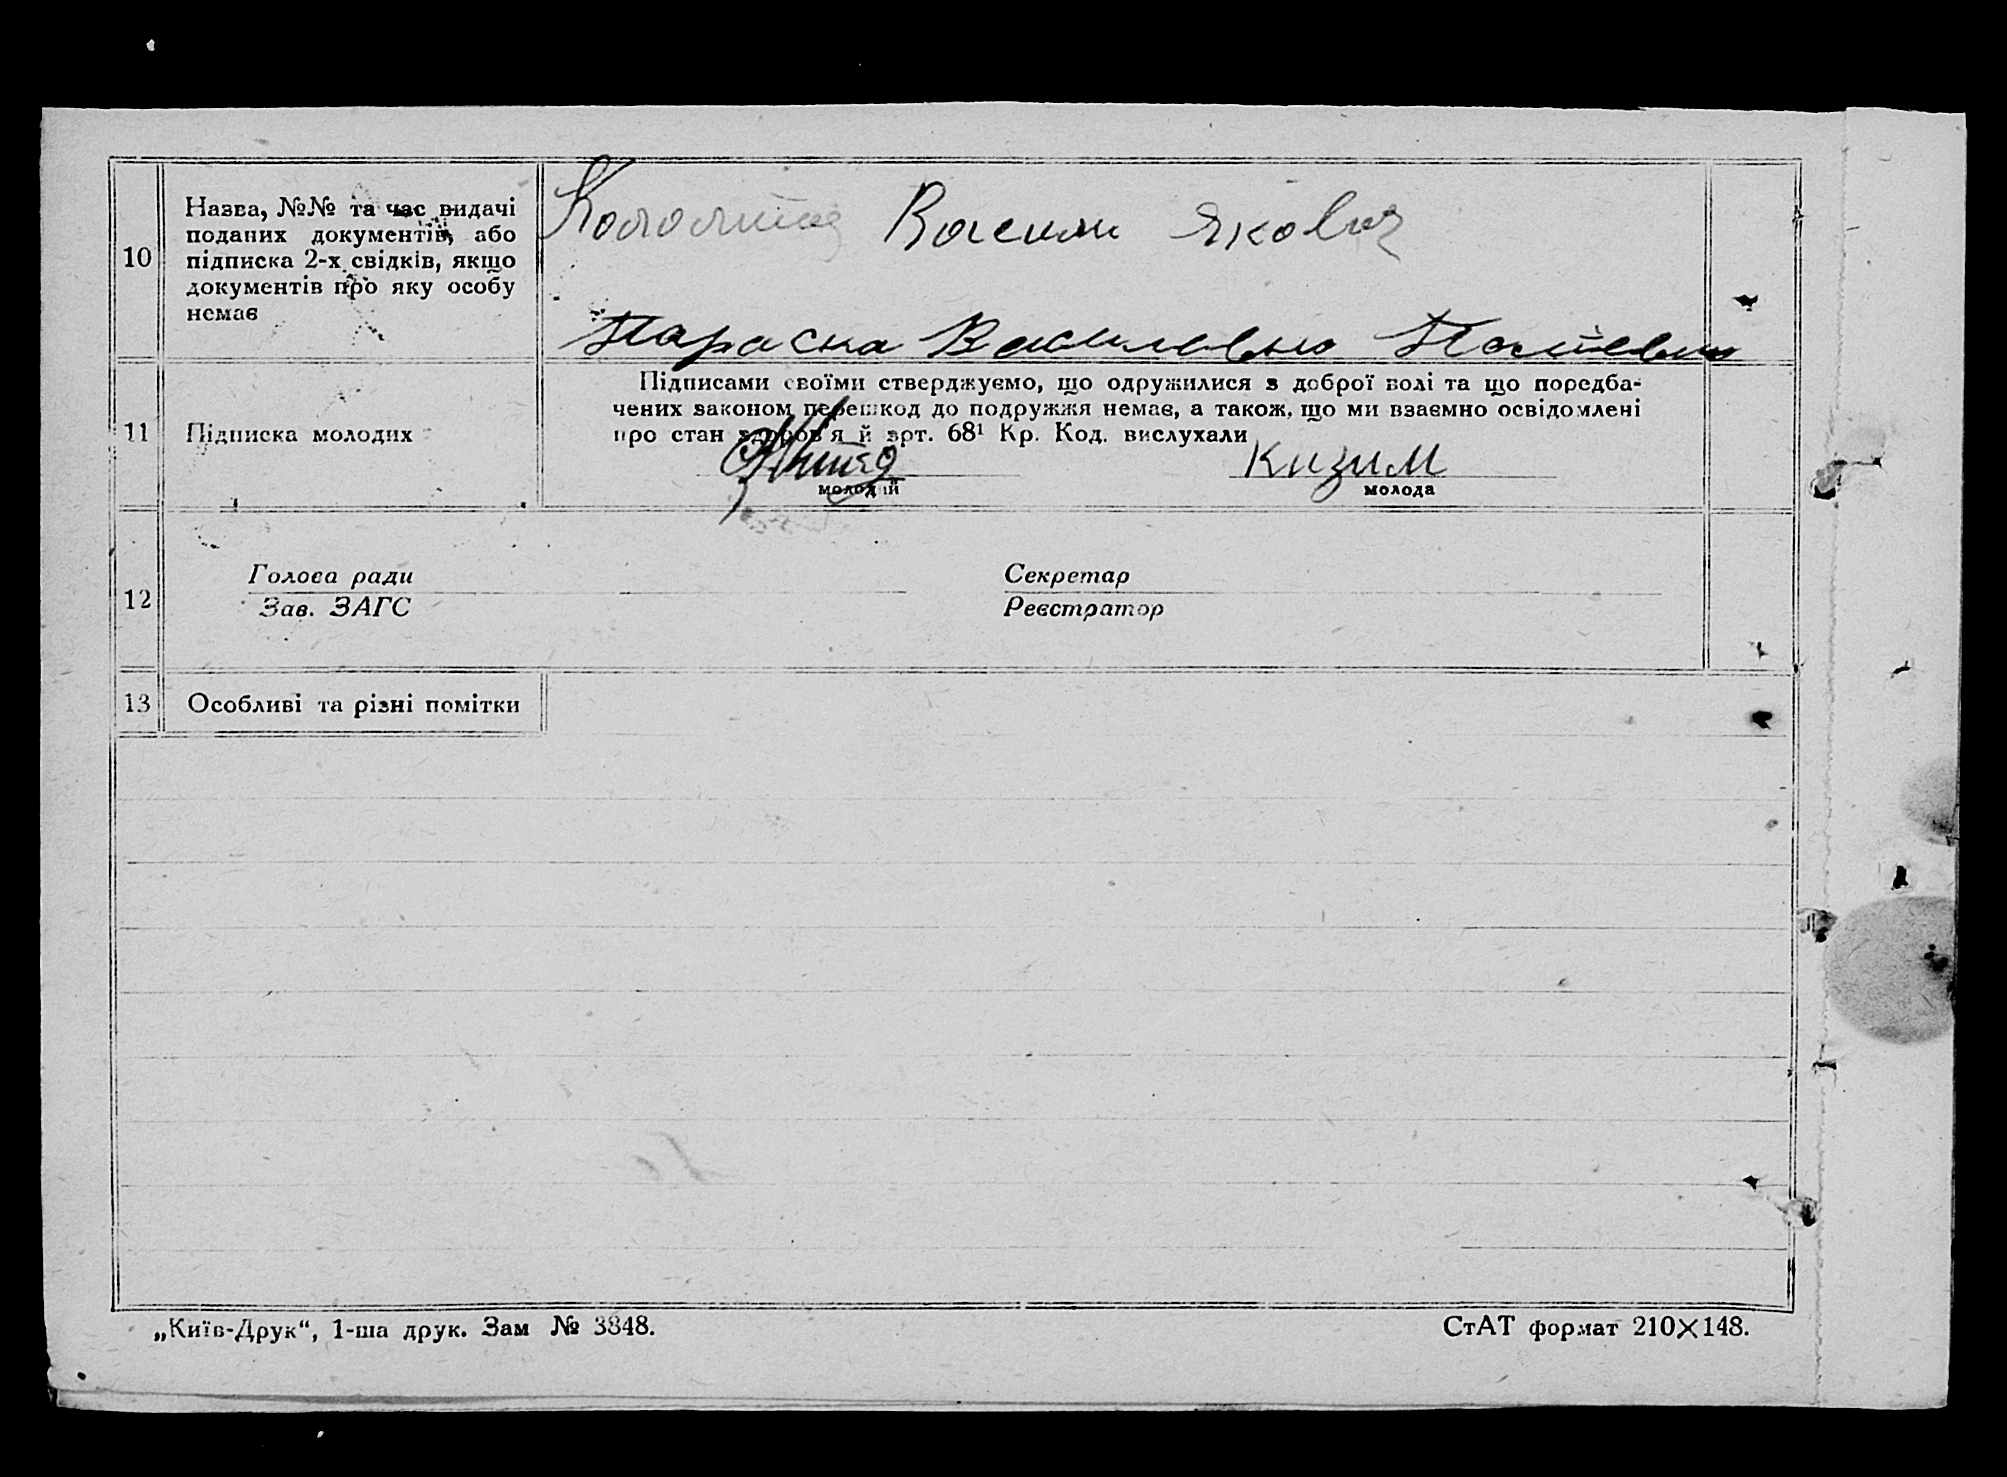 10
Назва, №№ та час видачі
поданих документів, або
підписка 2-х свідків, якщо
документів про яку особу
немає
Василь Якович
Параска Василевна
11
Підписка молодих
Підписами своїми стверджуємо, що одружилися з доброї волі та що поредба-
чених законом перешкод до подружжя немає, а також, що ми взаємно освідомлені
про стан здоров'я й арт. 68¹ Кр. Код. вислухали
Кизим
молодий
молода
12
Голова ради
Зав. ЗАГС
Секретар
Реєстратор
13
Особливі та різні помітки
„Київ-Друк“, 1-ша друк. Зам № 3848.
СтАТ формат 210×148.